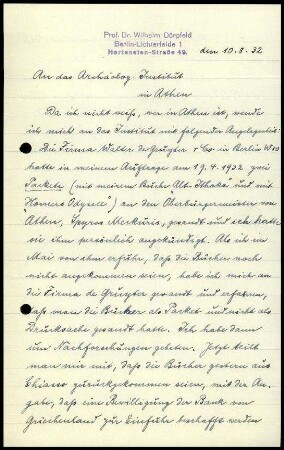 Prof. Dr. Wilhelm Dörpfeld
Berlin-Lichterfelde 1
Hortensien-Straße 49.
den 10.8.32
An das Archäolog. Institut
in Athen
Da ich nicht weiß, wer in Athen ist, wende
ich mich an das Institut mit folgender Angelegenheit:
Die Firma Walter de Gruyter & Co in Berlin W10
hatte in meinem Auftrage am 19.4.1932 zwei
Pakete (mit meinem Buche "Alt-Ithaka" und mit
"Homers Odyssee") an den Oberbürgermeister von
Athen, Spyros Merkuris, gesandt und ich hatte
sie ihm persönlich angekündigt. Als ich im
Mai von ihm erfuhr, daß die Bücher noch
nicht angekommen seien, habe ich mich an
die Firma de Gruyter gewandt und erfahren,
daß man die Bücher als Paket und nicht als
Drucksache gesandt hatte. Ich habe dann
um Nachforschungen gebeten. Jetzt teilt
man mir mit, daß die Bücher gestern aus
Chiasso zurückgekommen seien, mit der An-
gabe, daß eine Bewilligung der Bank von
Griechenland zur Einfuhr beschafft werden